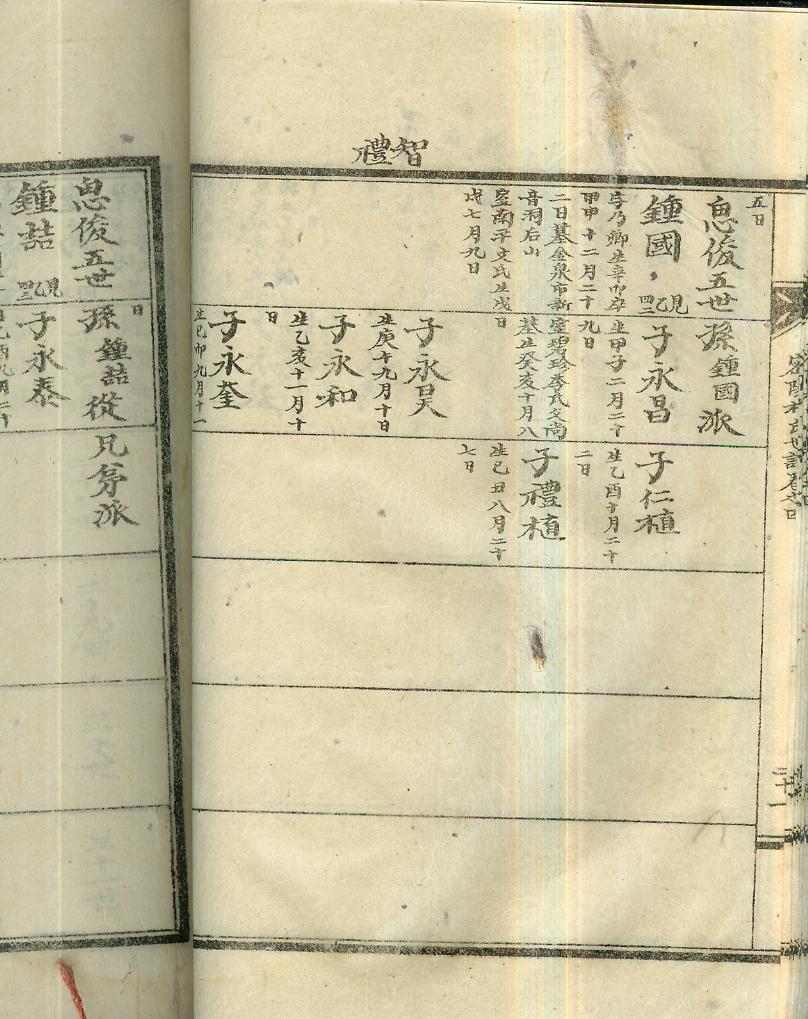 智禮
五日
思俊五世孫鍾國派
鍾國
見乙
四三
字乃卿生辛卯卒
甲申十二月二十
二日墓金泉市新
音洞后山
室南平文氏生戊
戌七月九日
子永昌
生甲子二月二十
九日
室碧珍李氏父尚
基生癸亥十月八
日
子永昊
生庚午九月十日
子永和
生乙亥十一月十
日
子永奎
生己卯九月十一
子仁植
生乙酉十月二十
二日
子禮植
生己丑八月二十
七日
二十一
日
思俊五世孫鍾喆從兄弟派
鍾喆
見乙
四三
子永泰